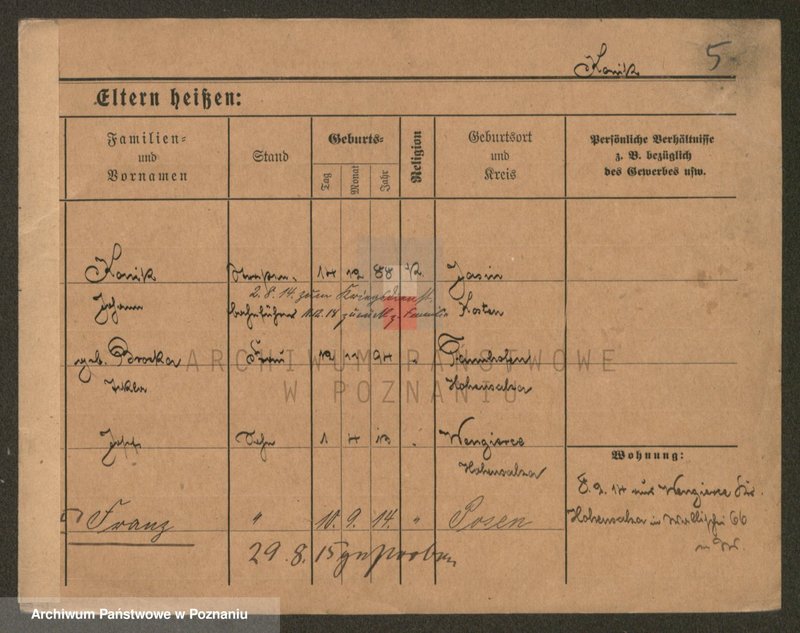 Kanik 5
Eltern heißen:
Familien- und Vornamen
Stand
Geburts-
Tag
Monat
Jahr
Religion
Geburtsort und Kreis
Persönliche Verhältnisse z. B. bezüglich des Gewerbes usw.
Kanik 14 12 88 K. Jasin
2.8.14. zum Kriegsdienst.
Johann zurück z. Familie Kosten
geb. Brocka Frau 12 11 94 "
Hohensalza
Josef Sohn 1 4 13 " Wengierce
Hohensalza
Wohnung:
8.9.14 aus Wengierce Kr.
Hohensalza in Wallischei 66
Franz " 10. 9. 14. " Posen
29.8.15 gestorben
ARCHIWUM PAŃSTWOWE
W POZNANIU
Archiwum Państwowe w Poznaniu